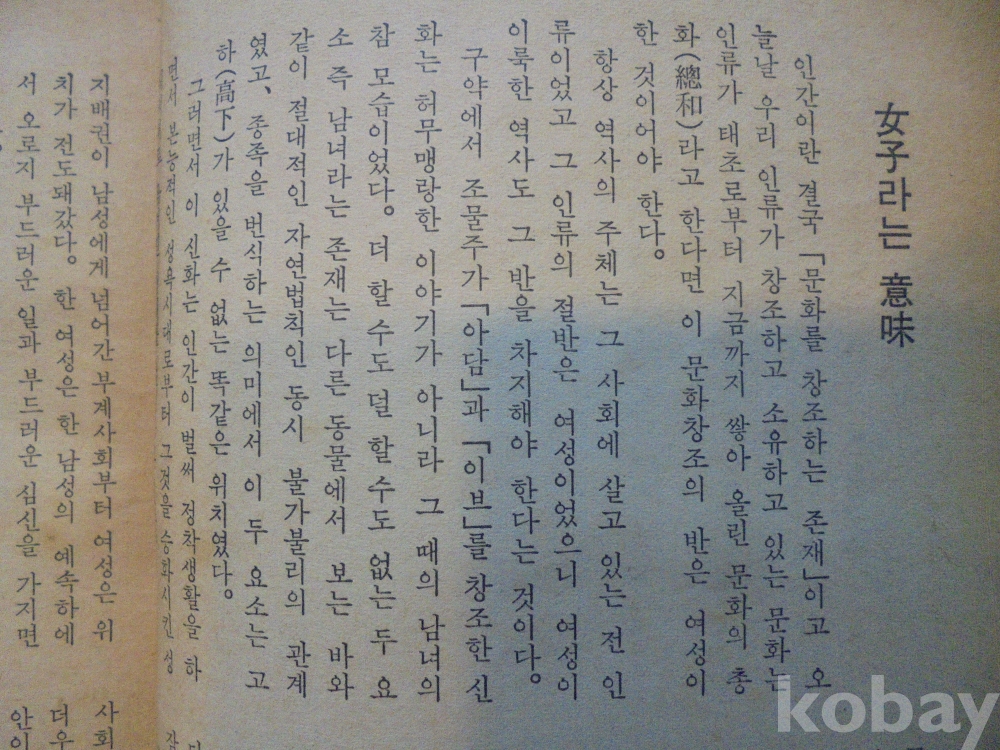 女子라는 意味
인간이란 결국 「문화를 창조하는 존재」이고 오
늘날 우리 인류가 창조하고 소유하고 있는 문화는
인류가 태초로부터 지금까지 쌓아 올린 문화의 총
화(總和)라고 한다면 이 문화창조의 반은 여성이
한 것이어야 한다。
항상 역사의 주체는 그 사회에 살고 있는 전 인
류이었고 그 인류의 절반은 여성이었으니 여성이
이룩한 역사도 그 반을 차지해야 한다는 것이다。
구약에서 조물주가 「아담」과 「이브」를 창조한 신
화는 허무맹랑한 이야기가 아니라 그 때의 남녀의
참 모습이었다。더 할 수도 덜 할 수도 없는 두 요
소 즉 남녀라는 존재는 다른 동물에서 보는 바와
같이 절대적인 자연법칙인 동시 불가불리의 관계
였고、종족을 번식하는 의미에서 이 두 요소는 고
하(高下)가 있을 수 없는 똑같은 위치였다。
그러면서 이 신화는 인간이 벌써 정착생활을 하
면서 본능적인 성욕시대로부터 그것을 승화시킨 성
지배권이 남성에게 넘어간 부계사회부터 여성은 위
치가 전도돼갔다。한 여성은 한 남성의 예속하에
서 오로지 부드러운 일과 부드러운 심신을 가지면
사회
더우
안이
kobay